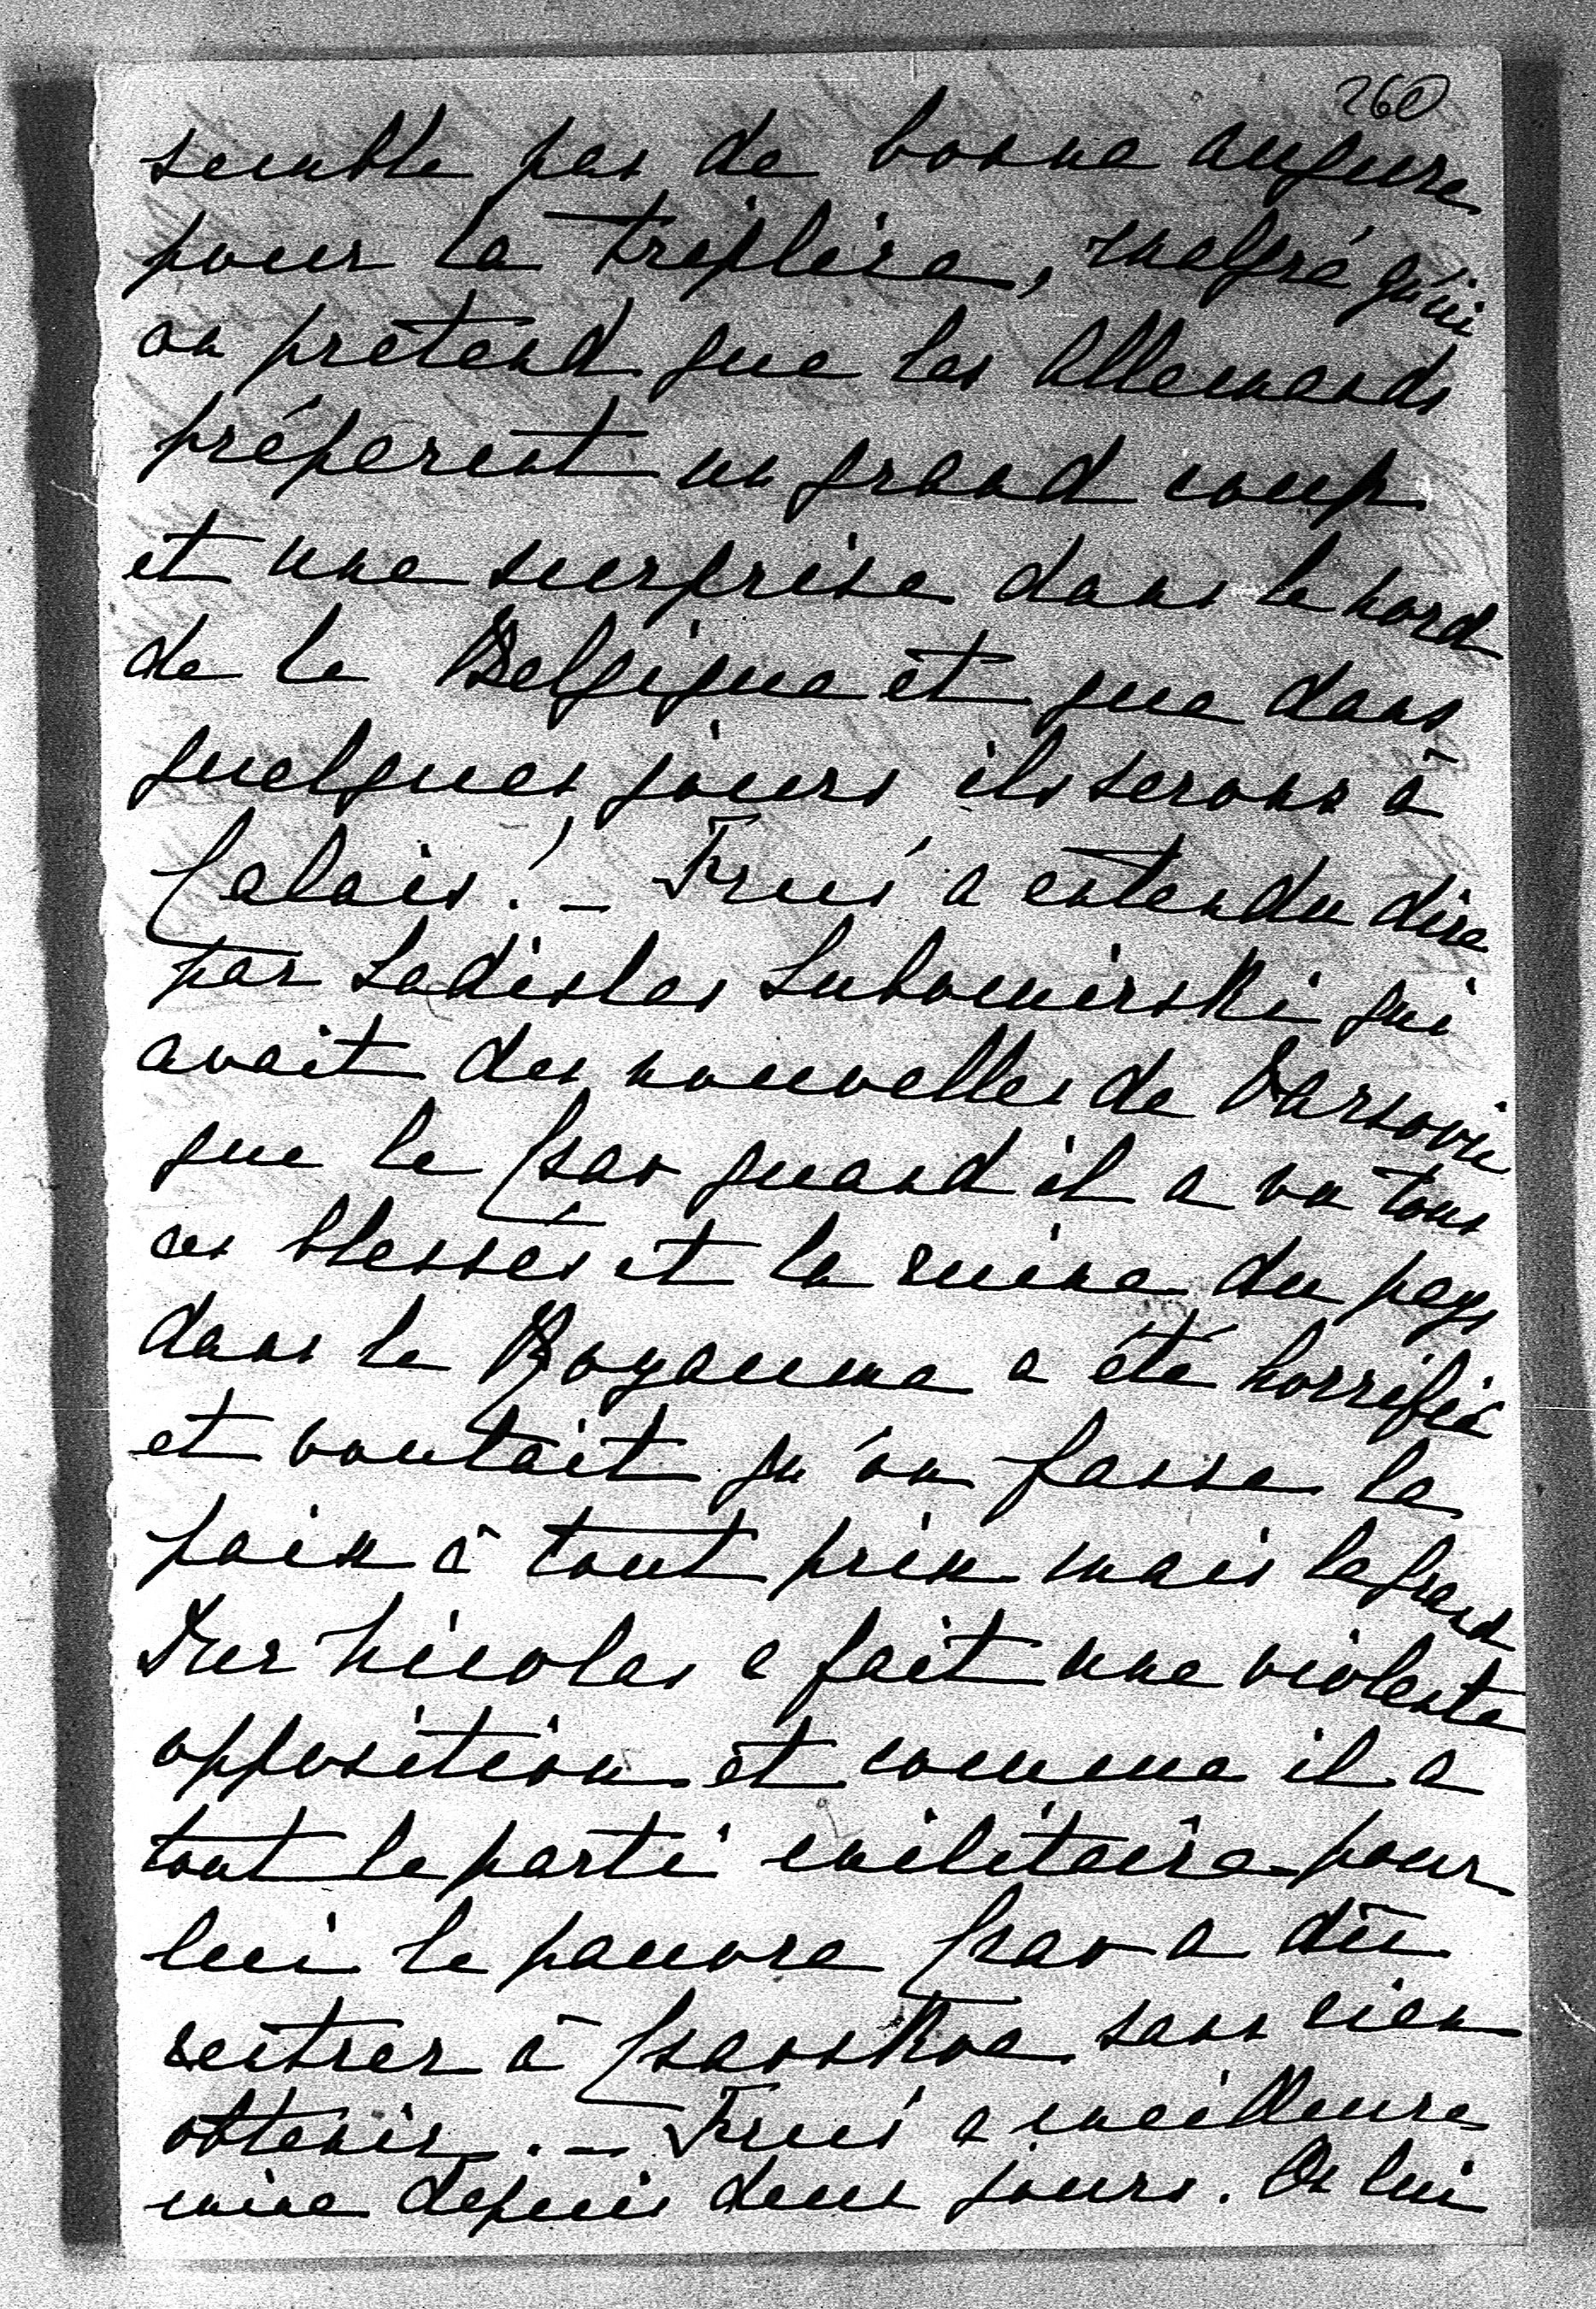 260
semble pas de bonne augure
pour la triplice, malgré qu'ici
on prétend que les Allemands
préparent un grand coup
et une surprise dans le nord
de la Belgique et que dans
quelques jours ils serons à
Calais! – Fruś a entendu dire
par Ladislas Lubomirski qui
avait des nouvelles de Varsovie
que le Csar quand il a vu tous
ces blessés et la ruine du pays
dans le Royaume a été horrifié
et voulait qu'on fasse la
paix à tout prix mais le grand
Duc Nicolas a fait une violente
opposition et comme il a
tout le parti militaire pour
lui le pauvre Csar a dû
rentrer à Csarskoe sans rien
obtenir. – Fruś a meilleure
mine depuis deux jours. On lui